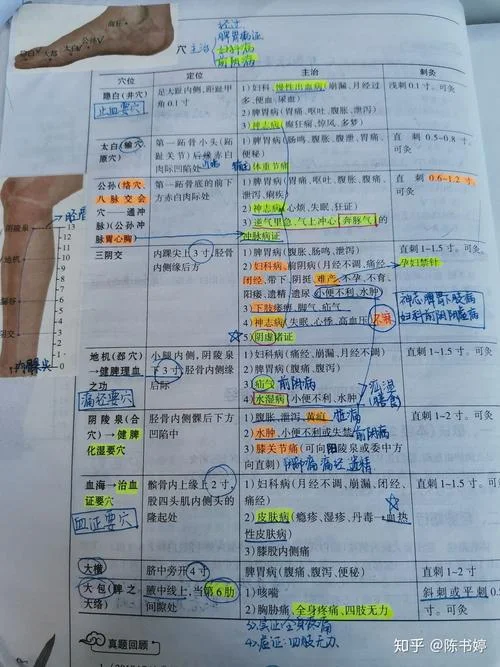 商丘
公孙
太白
大都
隐白
经过
脾胃病证
穴 主治 妇科病
前阴病
穴位 定位 主治 刺灸
隐白(井穴)
止血要穴
足大趾内侧,距趾甲角 0.1 寸
1)妇科、慢性出血病(崩漏、月经过多、便血、尿血)
2)脾胃病(胃痛、呕吐、腹胀、泄泻)
3)神志病(癫狂病、惊风、多梦)
浅刺 0.1 寸。可灸
太白(输穴、原穴)
第一跖骨小头(跖趾关节)后缘赤白肉际凹陷处
1)脾胃病(肠鸣、腹胀、腹泄、胃痛、便秘)
2)体重节痛
直刺 0.5~0.8 寸。可灸
公孙(络穴、八脉交会穴——通冲脉)(公孙冲脉胃心胸)
第一跖骨底的前下方赤白肉际处
1)脾胃病(胃痛、呕吐、腹胀、腹痛、泄泻、痢疾)
2)神志病(心烦、失眠、狂证)
3)逆气里急、气上冲心(奔豚气)的冲脉病证
直刺 0.6~1.2 寸。可灸
三阴交
内踝尖上 3 寸,胫骨内侧缘后方
1)脾胃病(腹胀、肠鸣、泄泻)
2)妇科病、前阴病(月经不调、痛经、闭经、带下、阴挺、难产、不孕、不育、阳痿、遗精、遗尿、小便不利、水肿)
3)下肢痿痹、脚气、疝气
4)神志病(失眠、心悸、高血压)
5)阴虚诸证
直刺 1~1.5 寸。可灸
孕妇禁针
地机(郄穴)→健脾理血之功
痛经要穴
小腿内侧,阴陵泉下 3 寸,胫骨内侧缘后际
1)妇科病(痛经、崩漏、月经不调)
2)脾胃病(腹痛、泄泻)
3)疝气 前阴病
4)水湿病(小便不利、水肿)
直刺 1~1.5 寸。可灸
阴陵泉(合穴)→健脾化湿要穴
胫骨内侧髁后下方凹陷中
1)腹胀、泄泻、黄疸
2)水肿、小便不利或失禁 前阴病
3)膝关节痛(可向阳陵泉或委中方向直刺)
直刺 1~2 寸。可灸
血海→治血证要穴
血证要穴
髌骨内上缘上 2 寸,股四头肌内侧头的隆起处
1)妇科病(月经不调、崩漏、闭经、痛经)
2)皮肤病(瘾疹、湿疹、丹毒→血热性皮肤病)
3)膝股内侧痛
直刺 1~1.5 寸。可灸
大横
脐中旁开 4 寸
脾胃病(腹痛、腹泻、便秘)
直刺 1~2 寸
大包(脾之大络)
腋中线上,当第 6 肋间隙处
1)咳喘
2)胸胁痛、全身疼痛、四肢无力
斜刺或平刺 0.5
寸。可灸
3)实证:全身疼痛
4)虚证:四肢无力
真题回顾
阴陵泉
地机
13
12
11
10
9
8
7
6
5
4
3
2
1
0
内踝尖
知乎 @陈书婷